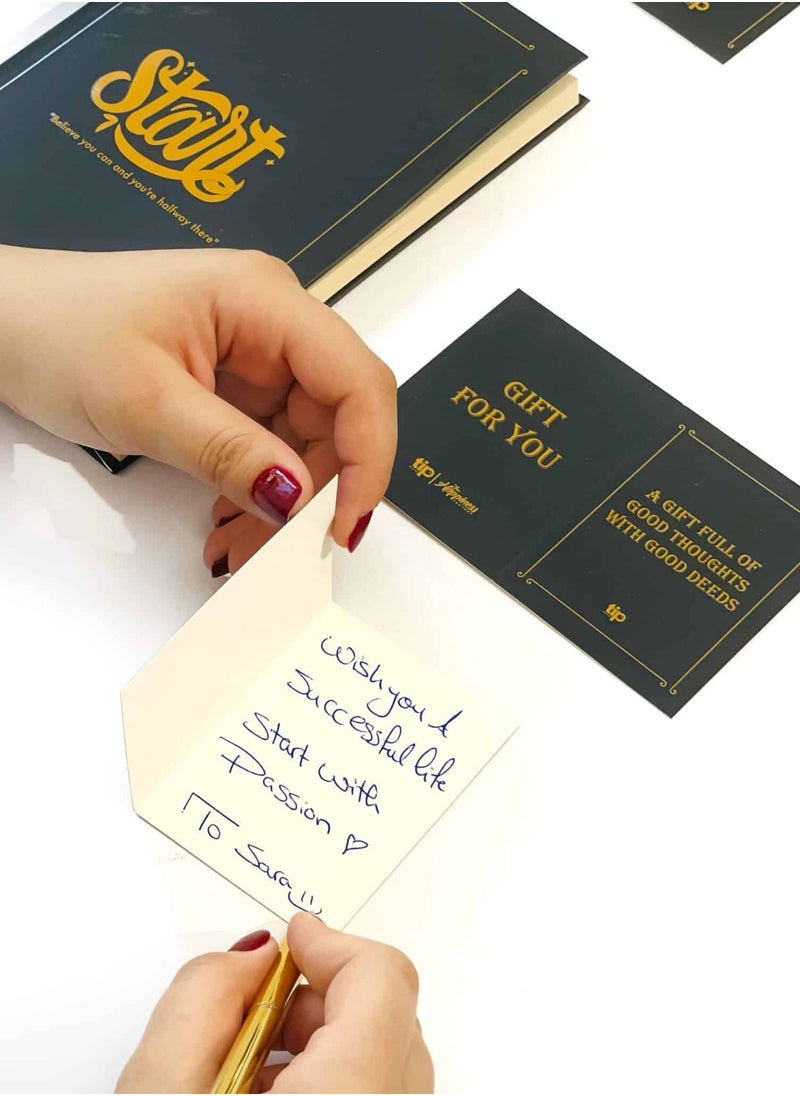 Start
"Believe you can and you're halfway there"
GIFT
FOR YOU
tip | The Happiness
A GIFT FULL OF
GOOD THOUGHTS
WITH GOOD DEEDS
tip
Wish you A
Successful life
Start with
Passion ♡
To Sara